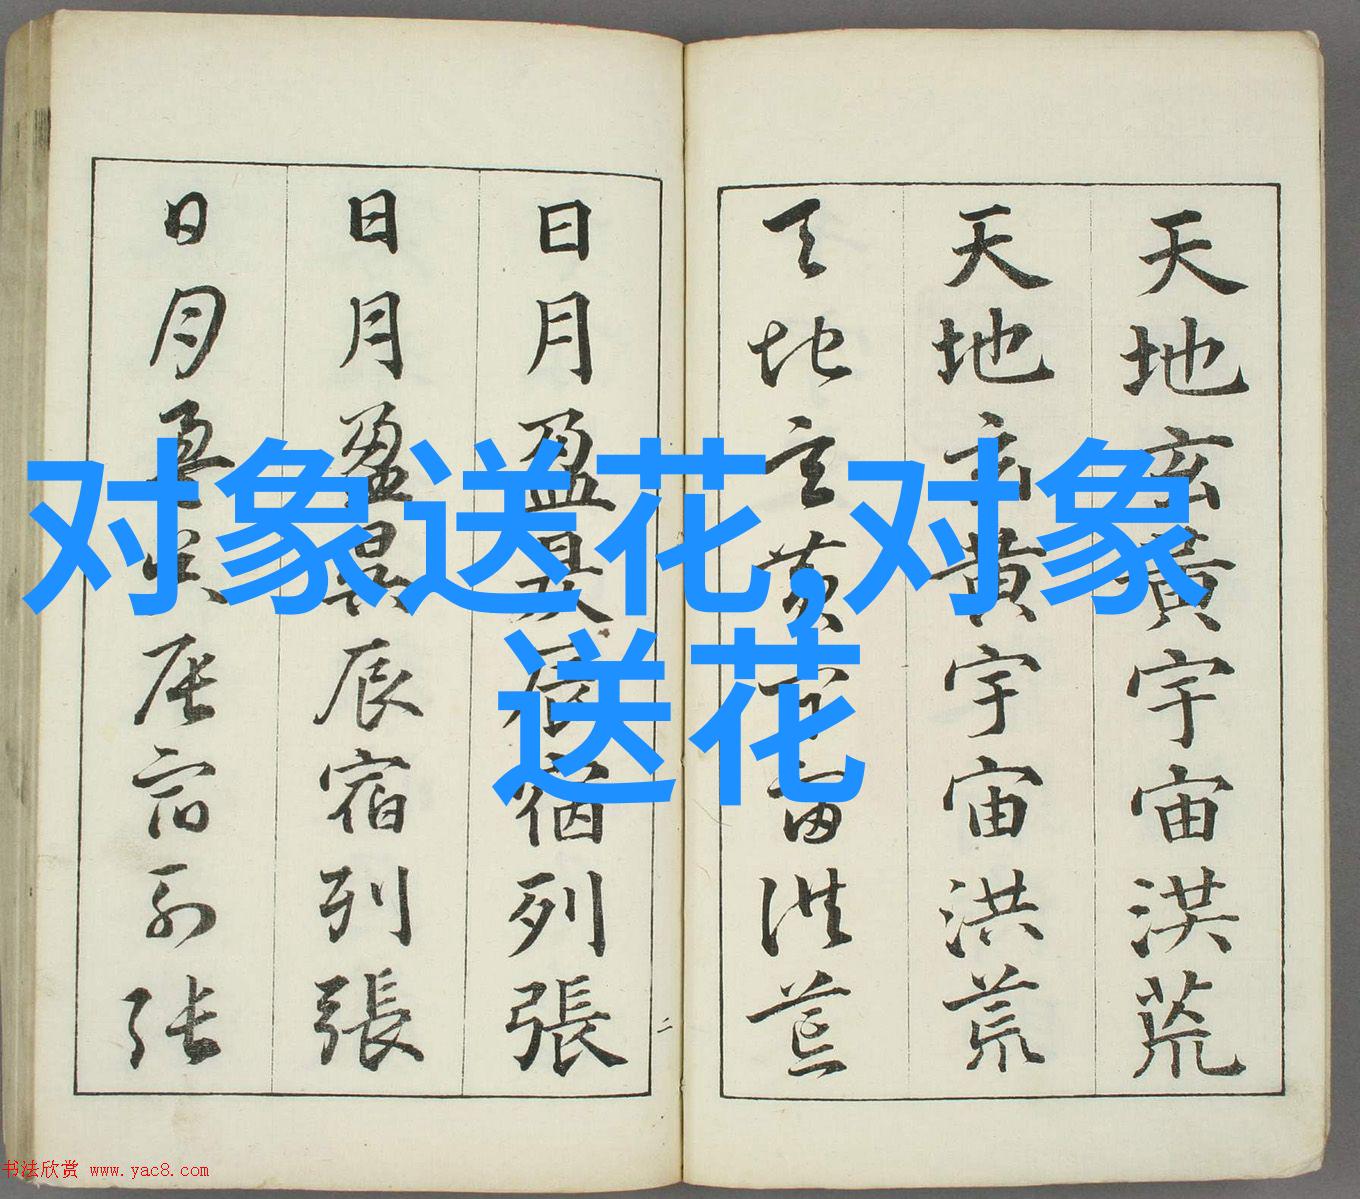 对象送花,对象
送花
天地玄黃宇宙洪荒
天地玄黄宇宙洪荒
天地玄黄宇宙洪荒
二
日月盈昃辰宿列張
日月盈昃辰宿列張
日月盈昃辰宿列張
书法欣赏 www.yac8.com